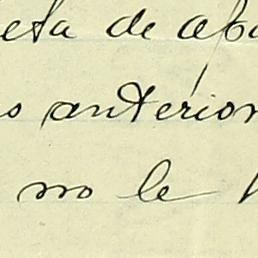 eta de apa
s anterior
no le